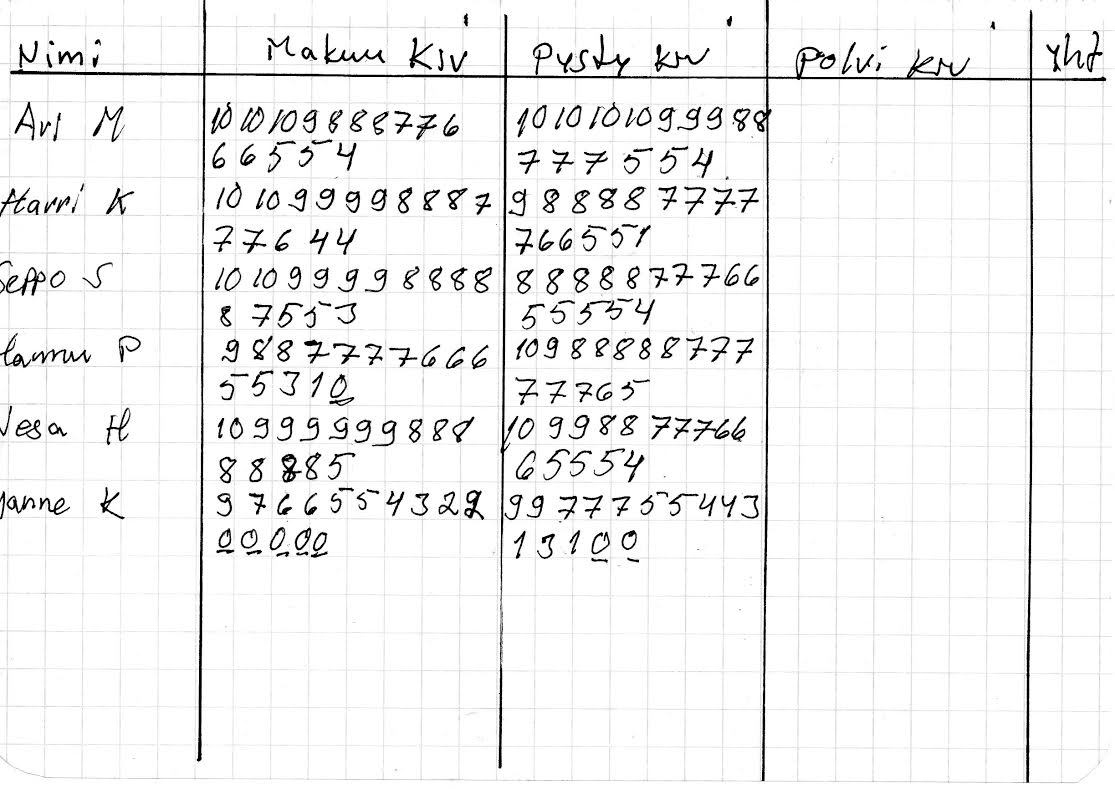 Nimi Makuu Kiv Pysty kiv Polvi kiv yht
Ari M 10 10 10 9 8 8 8 7 7 6 10 10 10 10 9 9 9 8 8
6 6 5 5 4 7 7 7 5 5 4
Harri K 10 10 9 9 9 9 8 8 8 7 9 8 8 8 8 7 7 7 7
7 7 6 4 4 7 6 6 5 5 1
Seppo S 10 10 9 9 9 9 8 8 8 8 8 8 8 8 8 7 7 7 6 6
8 7 5 5 3 5 5 5 5 4
Hannu P 9 8 8 7 7 7 7 6 6 6 10 9 8 8 8 8 8 7 7 7
5 5 3 1 0 7 7 7 6 5
Vesa H 10 9 9 9 9 9 9 8 8 8 10 9 9 8 8 7 7 7 6 6
8 8 8 8 5 6 5 5 5 4
Janne K 9 7 6 6 5 5 5 4 3 2 2 9 9 7 7 7 5 5 4 4 3
0 0 0 0 0 1 3 1 0 0